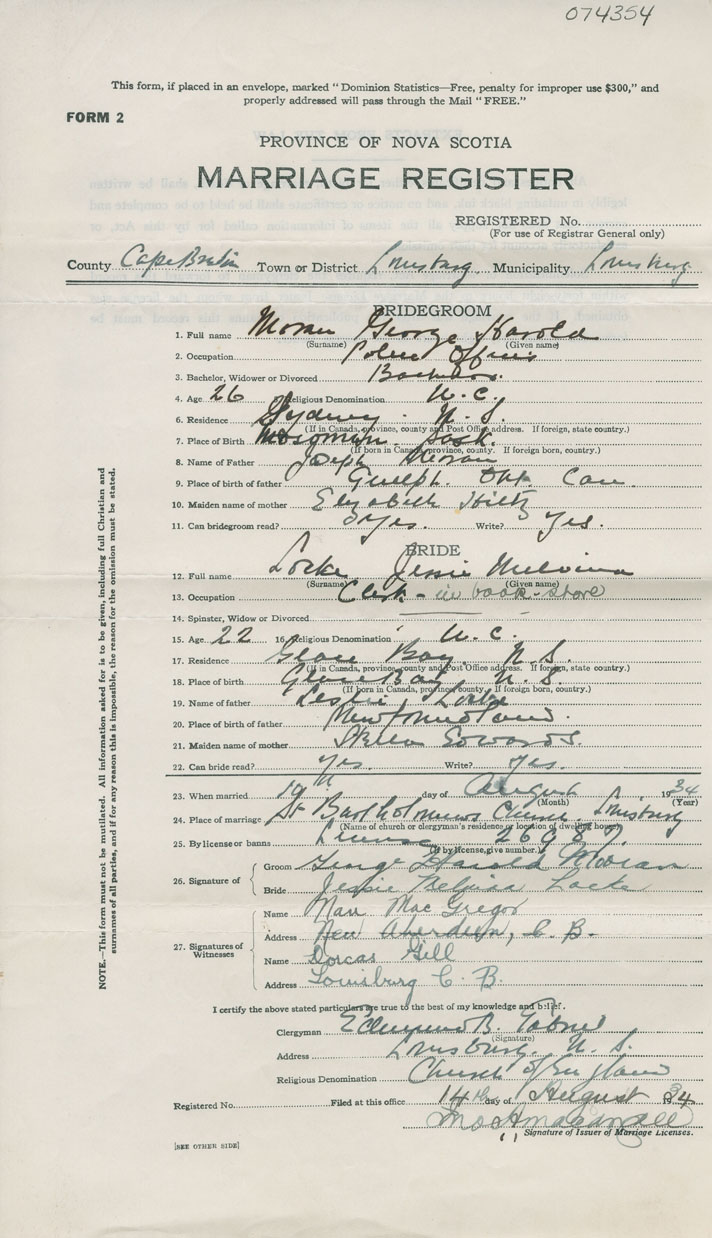 074354
This form, if placed in an envelope, marked "Dominion Statistics—Free, penalty for improper use $300," and
properly addressed will pass through the Mail "FREE."
FORM 2
PROVINCE OF NOVA SCOTIA
MARRIAGE REGISTER
REGISTERED No.
(For use of Registrar General only)
County Cape Breton Town or District Louisburg Municipality Louisburg
BRIDEGROOM
1. Full name Moran George Harold
(Surname) (Given name)
2. Occupation Police Officer
3. Bachelor, Widower or Divorced Bachelor
4. Age 26 5. Religious Denomination U. C.
6. Residence Sydney N. S
(If in Canada, province, county and Post Office address. If foreign, state country.)
7. Place of Birth Mosomin Sask.
(If born in Canada, province, county. If foreign born, country.)
8. Name of Father Joseph Moran
9. Place of birth of father Guelph Ont Can
10. Maiden name of mother Elizabeth Hiltz
11. Can bridegroom read? Yes. Write? Yes.
BRIDE
12. Full name Locke Jessie Melvina
(Surname) (Given name)
13. Occupation Clerk - in book-store
14. Spinster, Widow or Divorced
15. Age 22 16. Religious Denomination U. C.
17. Residence Glace Bay N. S.
(If in Canada, province, county and Post Office address. If foreign, state country.)
18. Place of birth Glace Bay N. S
(If born in Canada, province, county. If foreign born, country.)
19. Name of father Leslie Locke
20. Place of birth of father Newfoundland.
21. Maiden name of mother Stella Edwards.
22. Can bride read? Yes Write? Yes.
23. When married 10th day of August 1934
(Month) (Year)
24. Place of marriage St Bartholomews Church Louisburg
(Name of church or clergyman's residence or location of dwelling house)
25. By license or banns License 26987.
(If by license, give number.)
26. Signature of
Groom George Harold Moran
Bride Jessie Melvina Locke
27. Signatures of Witnesses
Name Mac Gregor
Address New Aberdeen, C. B.
Name Dorcas Gill
Address Louisburg C. B.
I certify the above stated particulars are true to the best of my knowledge and belief.
Clergyman B.
(Signature)
Address Louisburg. N. S.
Religious Denomination Church of England
Registered No. Filed at this office 14th day of August 1934
Signature of Issuer of Marriage Licenses.
[SEE OTHER SIDE]
NOTE.—This form must not be mutilated. All information asked for is to be given, including full Christian and
surnames of all parties, and if for any reason this is impossible, the reason for the omission must be stated.